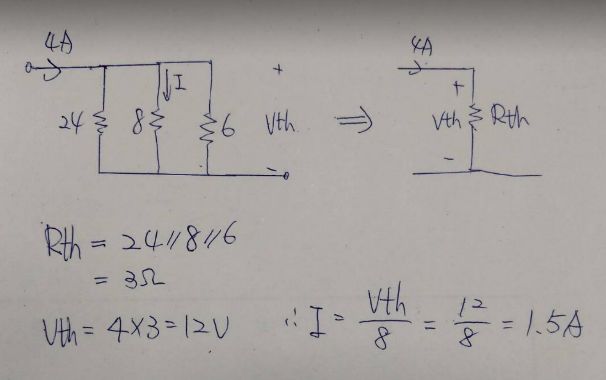 4A
I
+
24
8
6
Vth
-
⇒
4A
+
Vth
Rth
-
Rth = 24//8//6
= 3Ω
Vth = 4×3=12V
∴ I = Vth/8 = 12/8 = 1.5A